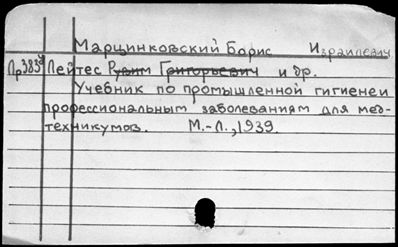 Марцинковский Борис Израилевич
Пр383 Лейтес Рувим Григорьевич и др.
Учебник по промышленной гигиене и
профессиональным заболеваниям для мед-
техникумов. М.-Л., 1939.